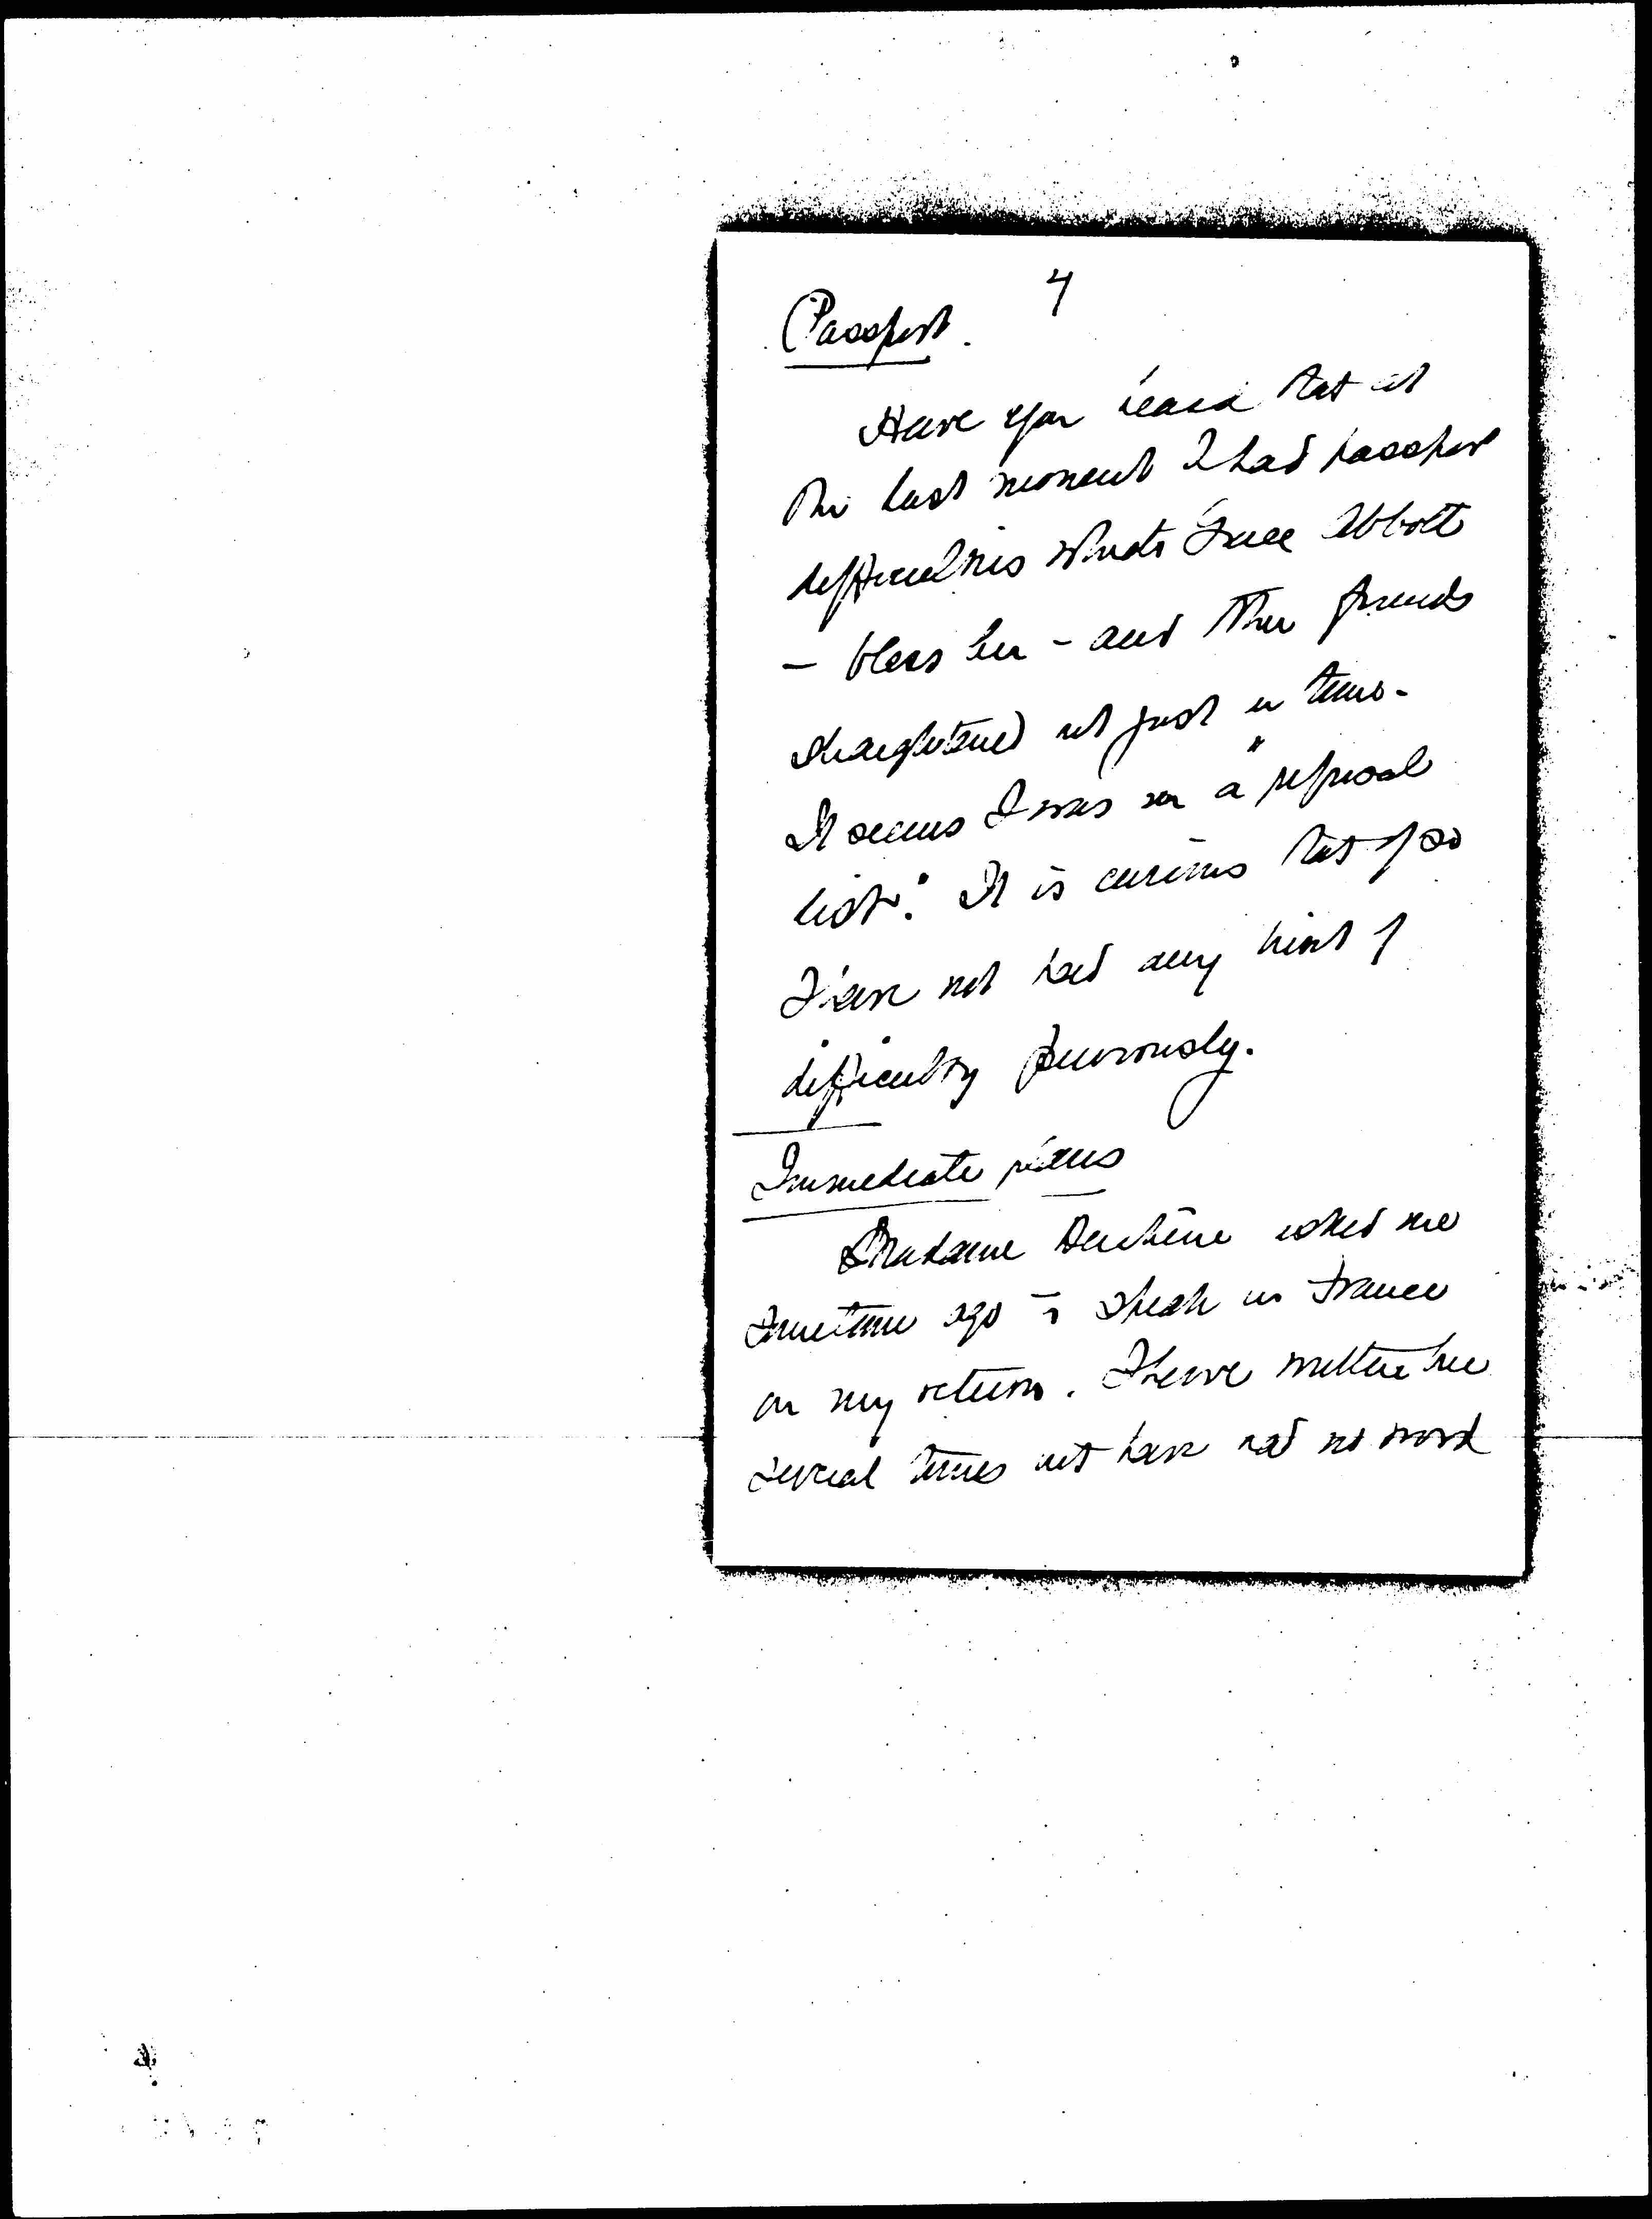 4
Passport.
Have you heard that at
the last moment I had passport
difficulties which Grace Abbott
- bless her - and other friends
straightened out just in time.
It seems I was on a "refusal
list." It is curious that if so
I have not had any hint of
difficulty previously.
Immediate plans
Madame Duchêne asked me
sometime ago to speak in France
on my return. I have written her
several times but have had no word